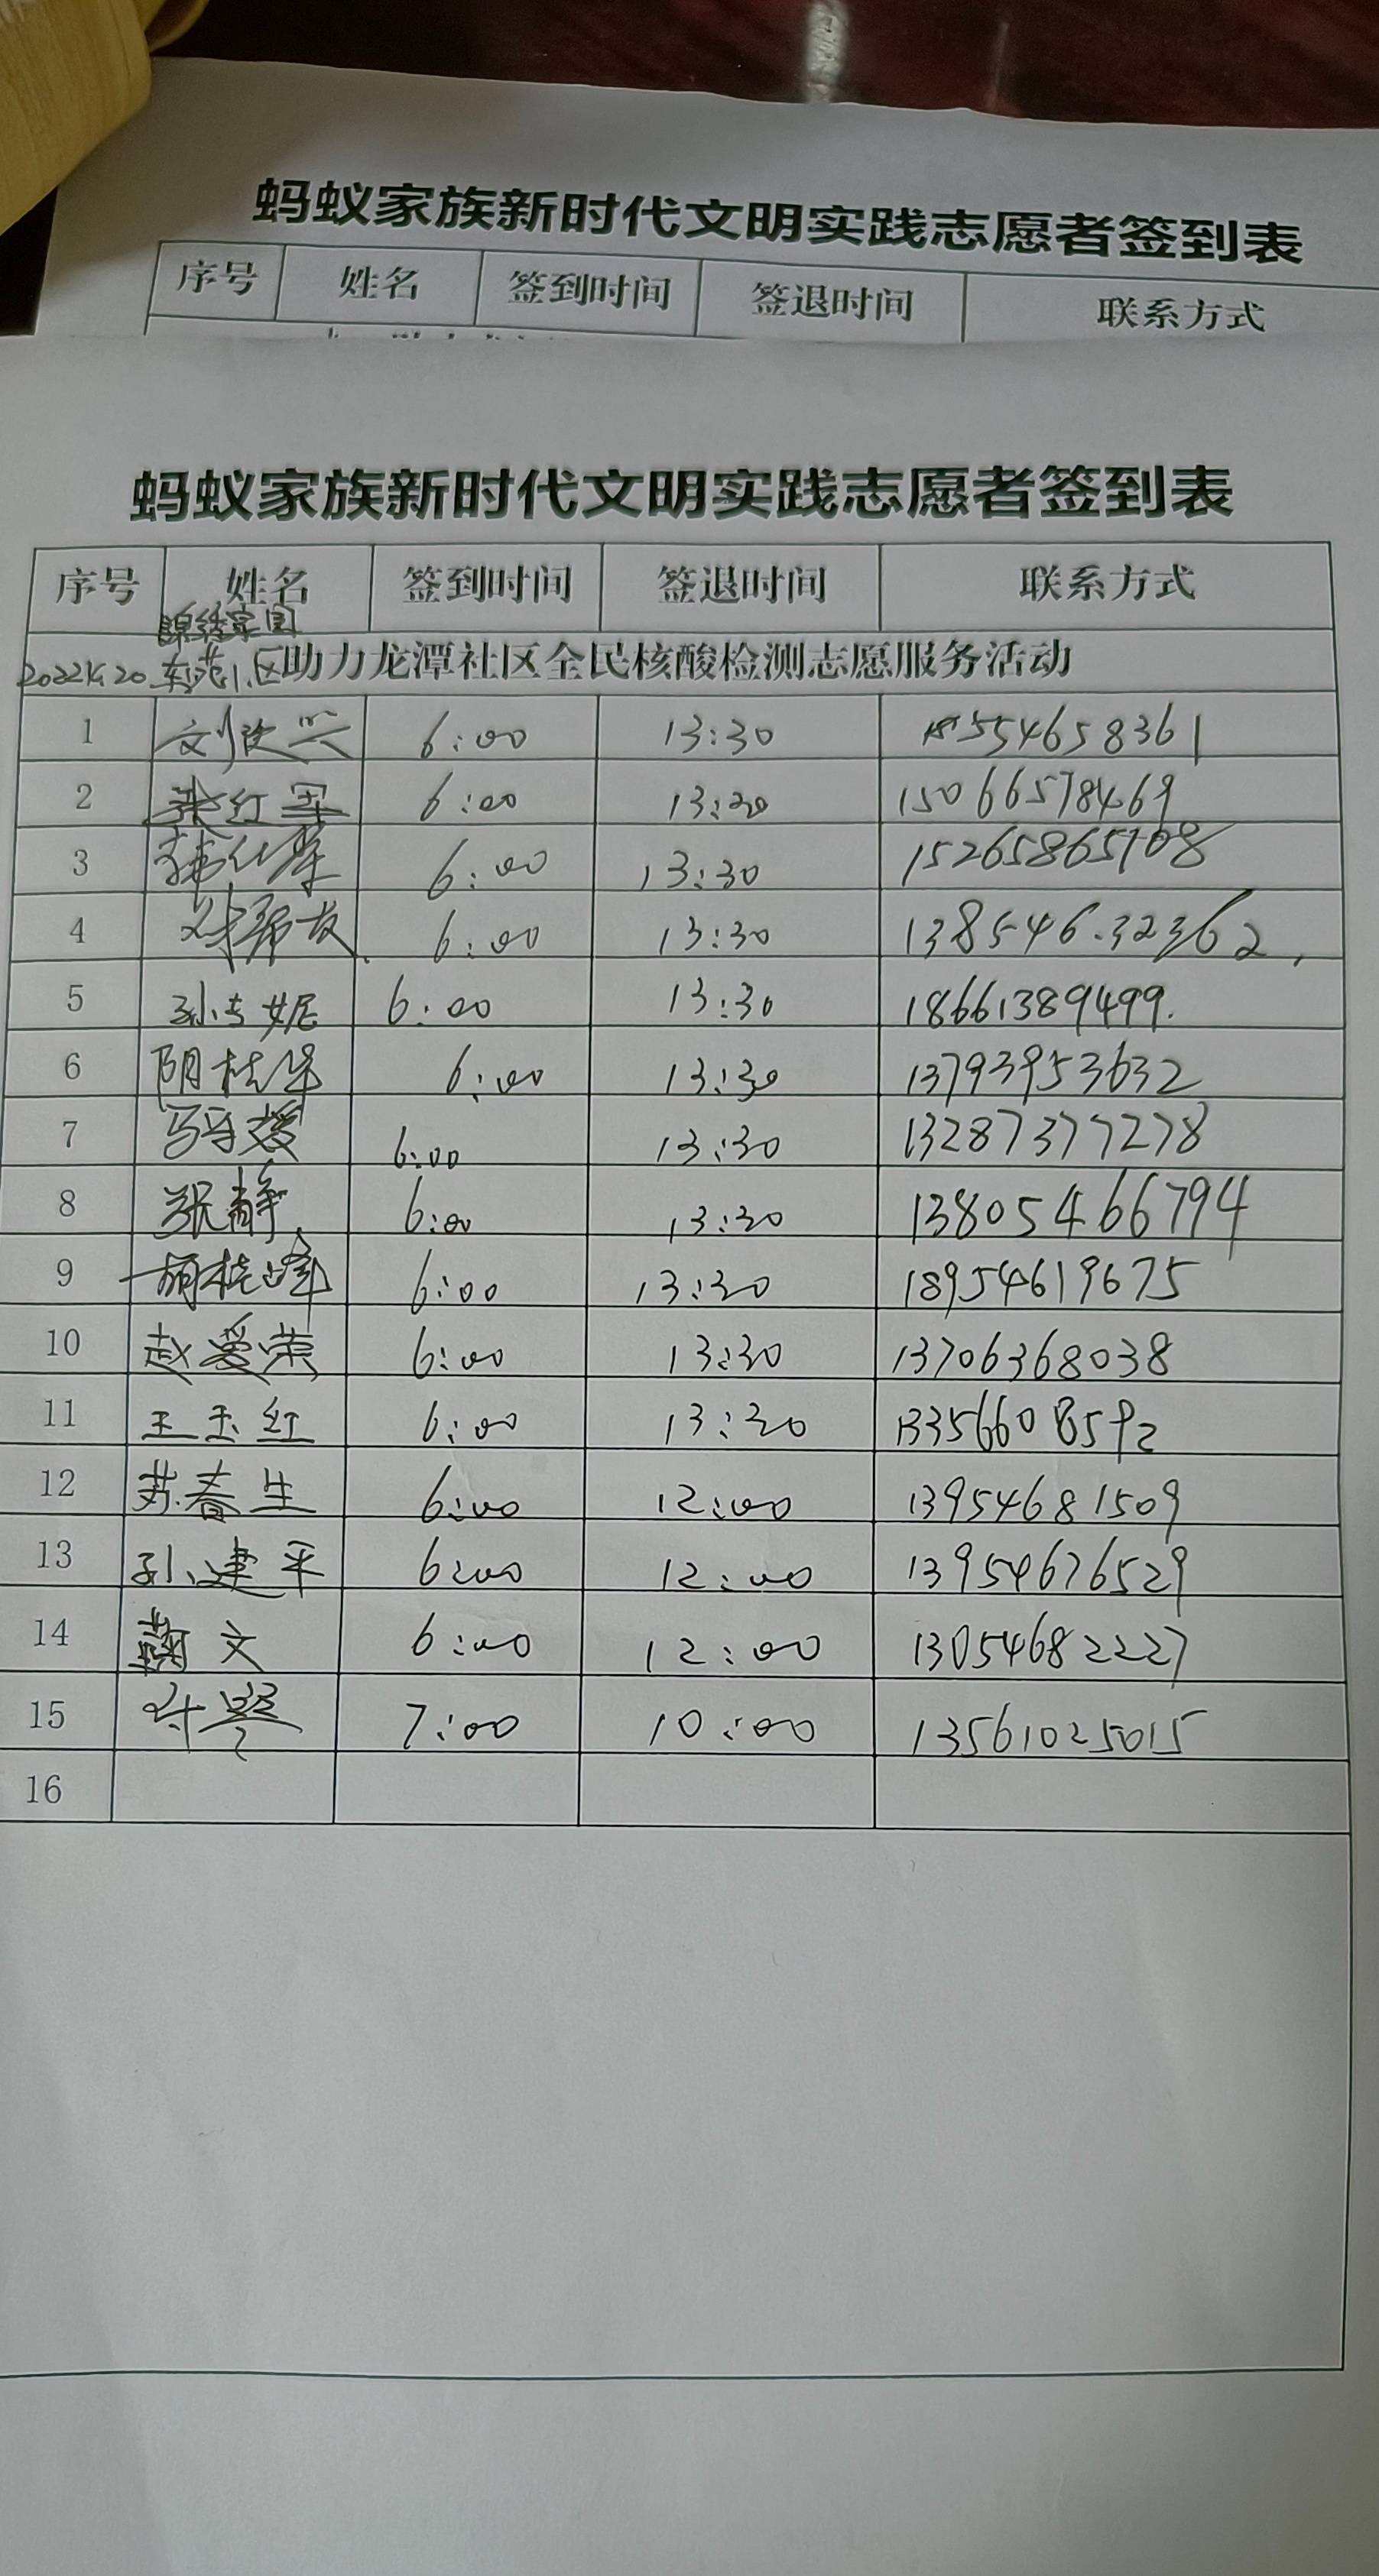 蚂蚁家族新时代文明实践志愿者签到表
序号 姓名 签到时间 签退时间 联系方式
蚂蚁家族新时代文明实践志愿者签到表
序号 姓名 签到时间 签退时间 联系方式
锦绣家园
东苑小区助力龙潭社区全民核酸检测志愿服务活动
1 6:00 13:30 18554658361
2 张红军 6:00 13:30 15066578469
3 6:00 13:30 15265865708
4 6:00 13:30 13854632362
5 孙 妮 6:00 13:30 18661389499.
6 阴桂 6:00 13:30 13793953632
7 6:00 13:30 13287377278
8 张静 6:00 13:30 13805466794
9 胡 峰 6:00 13:30 18954619675
10 赵爱荣 6:00 13:30 13706368038
11 王玉红 6:00 13:30 13356608592
12 苏春生 6:00 12:00 13954681509
13 孙建平 6:00 12:00 13954676529
14 蔺文 6:00 12:00 13054682227
15 7:00 10:00 13561025015
16